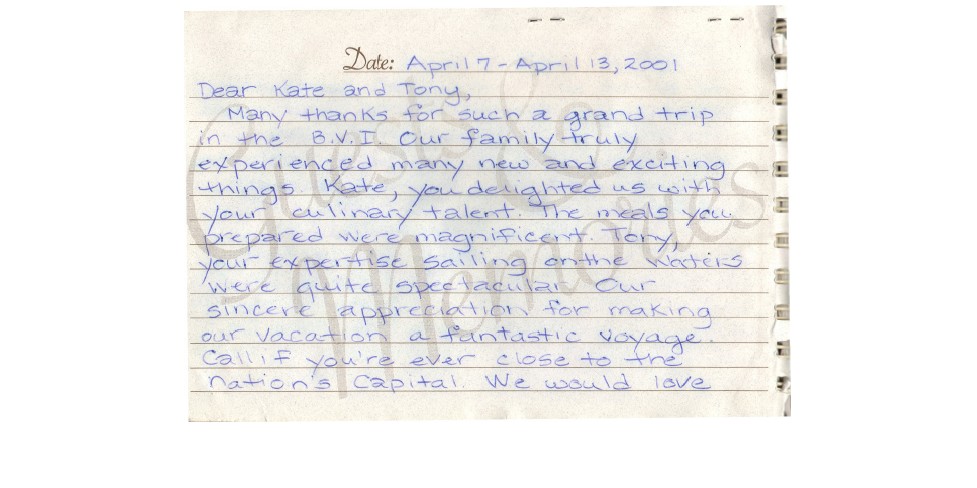 Date: April 7 - April 13, 2001
Dear Kate and Tony,
Many thanks for such a grand trip
in the B.V.I. Our family truly
experienced many new and exciting
things. Kate, you delighted us with
your culinary talent. The meals you
prepared were magnificent. Tony,
your expertise sailing on the waters
were quite spectacular. Our
sincere appreciation for making
our vacation a fantastic voyage.
Call if you're ever close to the
nation's Capital. We would love
Guests &
Memories